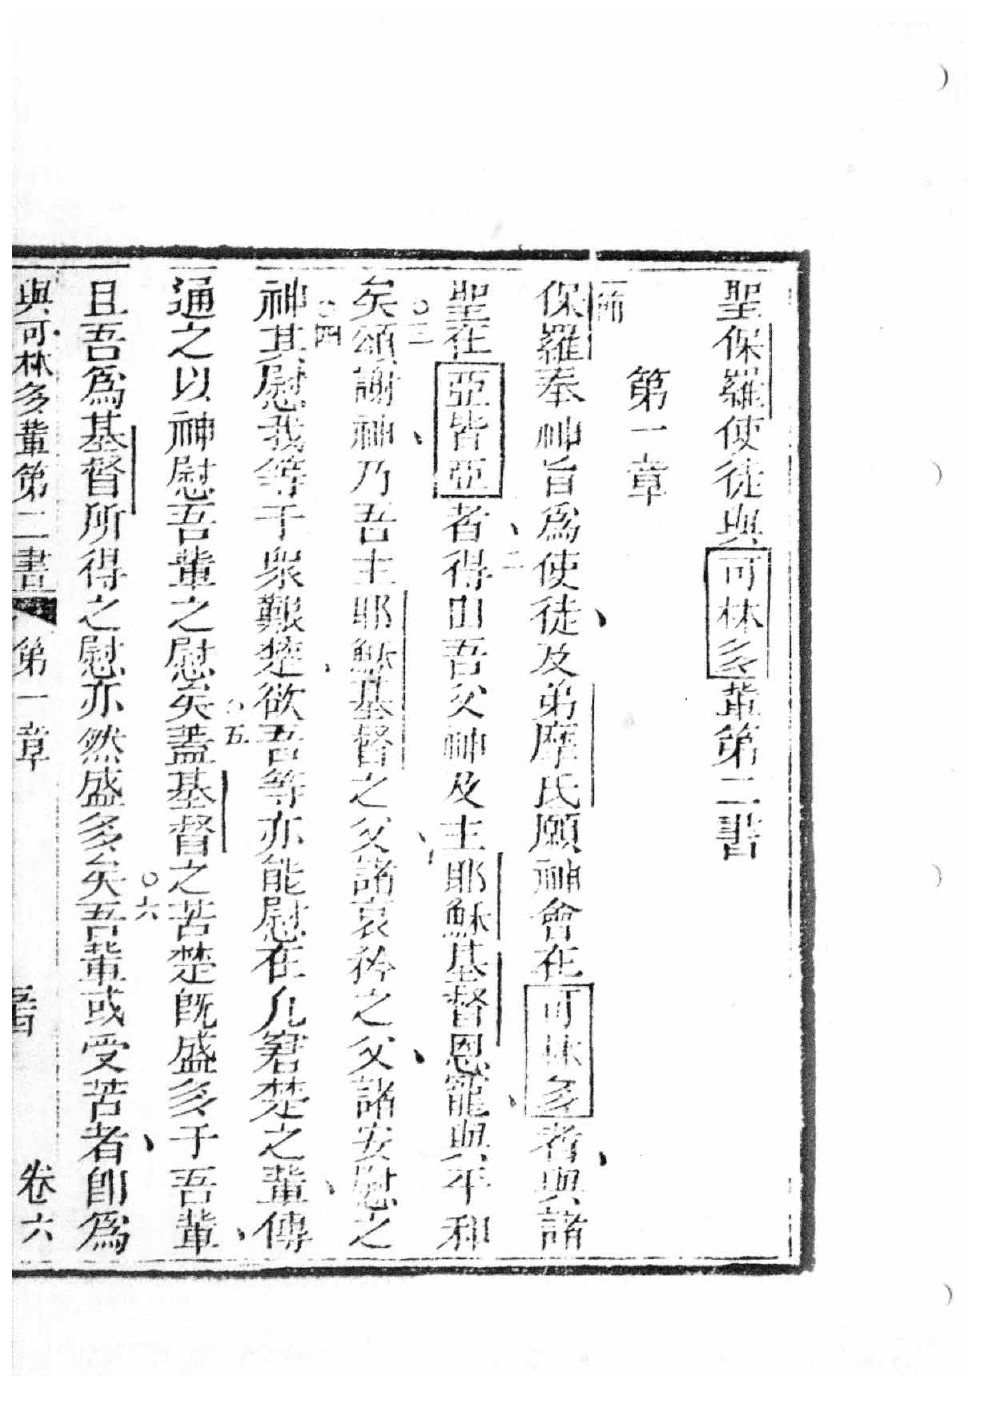 聖保羅使徒與可林多輩第二書
第一章
一節
保羅奉神旨爲使徒及弟摩氐願神會在可林多者與諸
二
聖在亞皆亞者得由吾父神及主耶穌基督恩寵與平和
○三
矣頌謝神乃吾主耶穌基督之父諸哀矜之父諸安慰之
○四
神其慰我等于眾艱楚欲吾等亦能慰在凡窘楚之輩傳
○五
通之以神慰吾輩之慰矣蓋基督之苦楚旣盛多于吾輩
○六
且吾爲基督所得之慰亦然盛多矣吾輩或受苦者卽爲
與可林多輩第二書 第一章 卷六